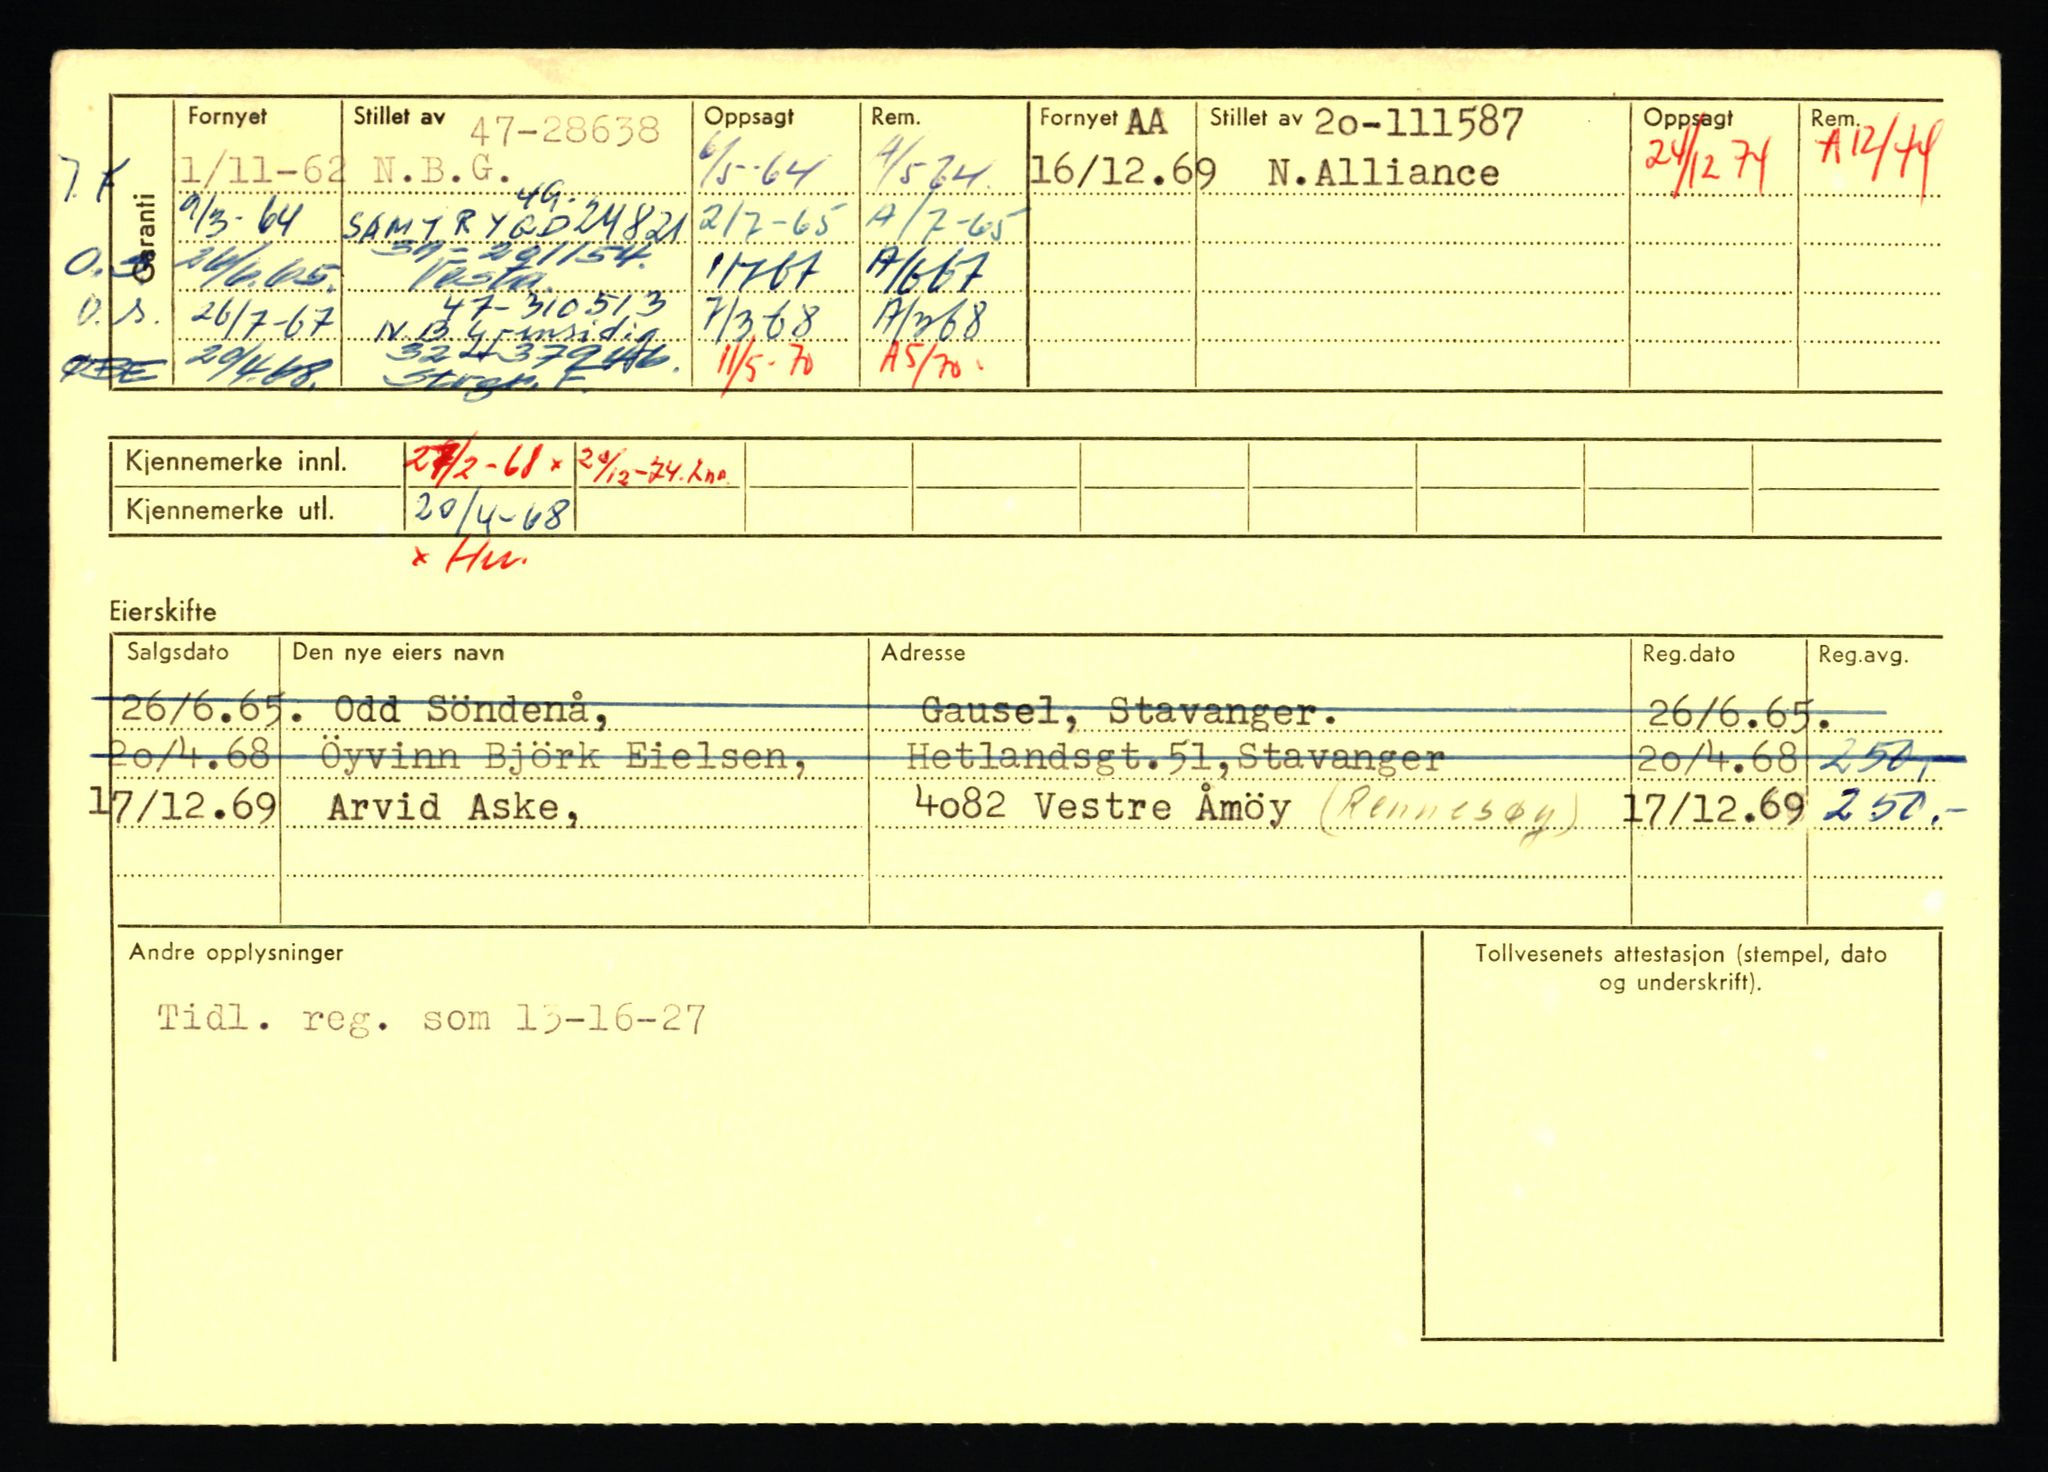 Garanti
Fornyet Stillet av 47-28638 Oppsagt Rem. Fornyet AA Stillet av 2o-111587 Oppsagt Rem.
1/11-62 N.B.G. 6/5-64 A/5 64. 16/12.69 N.Alliance 24/12 74 A 12/74
9/3-64 SAMTRYGD 24821 2/7-65 A/7-65
O.S. 26/6.65. 39-291154. Vesta. A/667
O.S. 26/7-67 47-310513 7/368 A/368
20/4.68. 11/5-70 A5/70.
Kjennemerke innl. 27/2-68 x 20/12-74.
Kjennemerke utl. 20/4-68
x
Eierskifte
Salgsdato Den nye eiers navn Adresse Reg.dato Reg.avg.
26/6.65. Odd Söndenå, Gausel, Stavanger. 26/6.65.
2o/4.68 Öyvinn Björk Eielsen, Hetlandsgt.51,Stavanger 2o/4.68 250,-
17/12.69 Arvid Aske, 4o82 Vestre Åmöy (Rennesøy) 17/12.69 250.-
Andre opplysninger
Tidl. reg. som 13-16-27
Tollvesenets attestasjon (stempel, dato
og underskrift).